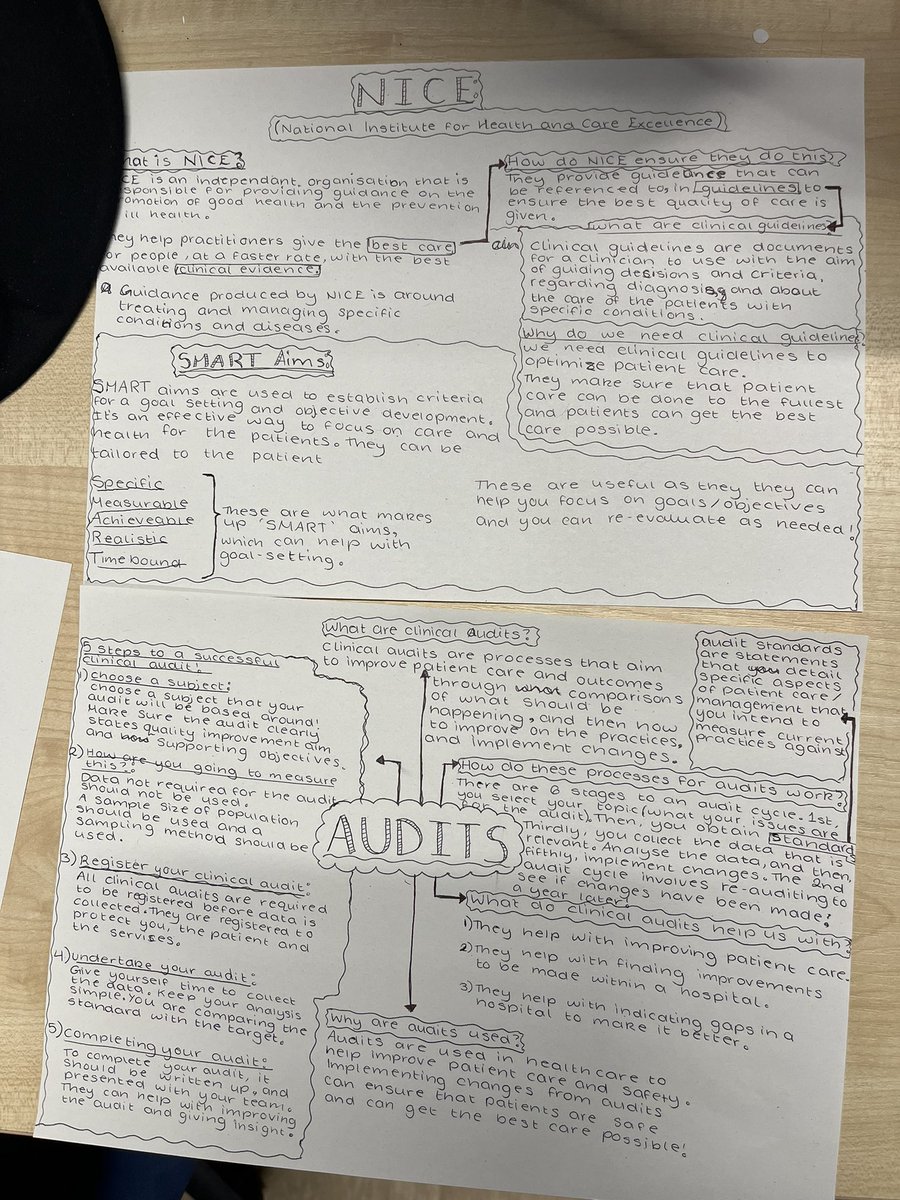 NICE:
(National Institute for Health and Care Excellence)
hat is NICE?
CE is an independent organisation that is
sponsible for providing guidance on the
omotion of good health and the prevention
ill health.
hey help practitioners give the best care
or people, at a faster rate, with the best
available clinical evidence.
Guidance produced by NICE is around
treating and managing specific
conditions and diseases.
How do NICE ensure they do this?
They provide guideance that can
be referenced to, in guidelines to
ensure the best quality of care is
given.
what are clinical guidelines?
aim
clinical guidelines are documents
for a clinician to use with the aim
of guiding decisions and criteria,
regarding diagnosis and about
the care of the patients with
specific conditions.
Why do we need clinical guidelines?
we need clinical guidelines to
optimize patient care.
They make sure that patient
care can be done to the fullest
and patients can get the best
care possible.
SMART Aims?
SMART aims are used to establish criteria
for a goal setting and objective development.
It's an effective way to focus on care and
health for the patients. They can be
tailored to the patient
Specific
Measurable
Achieveable
Realistic
Time bound
These are what makes
up 'SMART' aims,
which can help with
goal-setting.
These are useful as they they can
help you focus on goals/objectives
and you can re-evaluate as needed!
5 steps to a successful
clinical audit!
1) choose a subject:
choose a subject that your
audit will be based around!
Make sure the audit clearly
states quality improvement aim
and supporting objectives.
2) How are you going to measure
this?:
Data not required for the audit
should not be used.
A sample size of population
should be used and a
sampling method should be
used.
3) Register your clinical audit:
All clinical audits are required
to be registered before data is
collected. They are registered to
protect you, the patient and
the services.
4) undertake your audit:
Give yourself time to collect
the data. Keep your analysis
simple. You are comparing the
standard with the target.
5) Completing your audit:
To complete your audit, it
should be written up, and
presented with your team.
They can help with improving
the audit and giving insight.
What are clinical audits?
Clinical audits are processes that aim
to improve patient care and outcomes
through comparisons
of what should be
happening, and then how
to improve on the practices,
and implement changes.
audit standards
are statements
that detail
specific aspects
of patient care/
management that
you intend to
measure current
practices against
AUDITS
How do these processes for audits work?
There are 6 stages to an audit cycle. 1st,
you select your topic (what your issues are
for the audit). Then, you obtain standard
Thirdly, you collect the data that is
relevant. Analyse the data, and then,
fifthly, implement changes. The 2nd
audit cycle involves re-auditing to
see if changes have been made!
a year later!
What do clinical audits help us with?
1) They help with improving patient care.
2) They help with finding improvements
to be made within a hospital.
3) They help with indicating gaps in a
hospital to make it better.
Why are audits used?
Audits are used in healthcare to
help improve patient care and safety.
Implementing changes from audits
can ensure that patients are safe
and can get the best care possible!